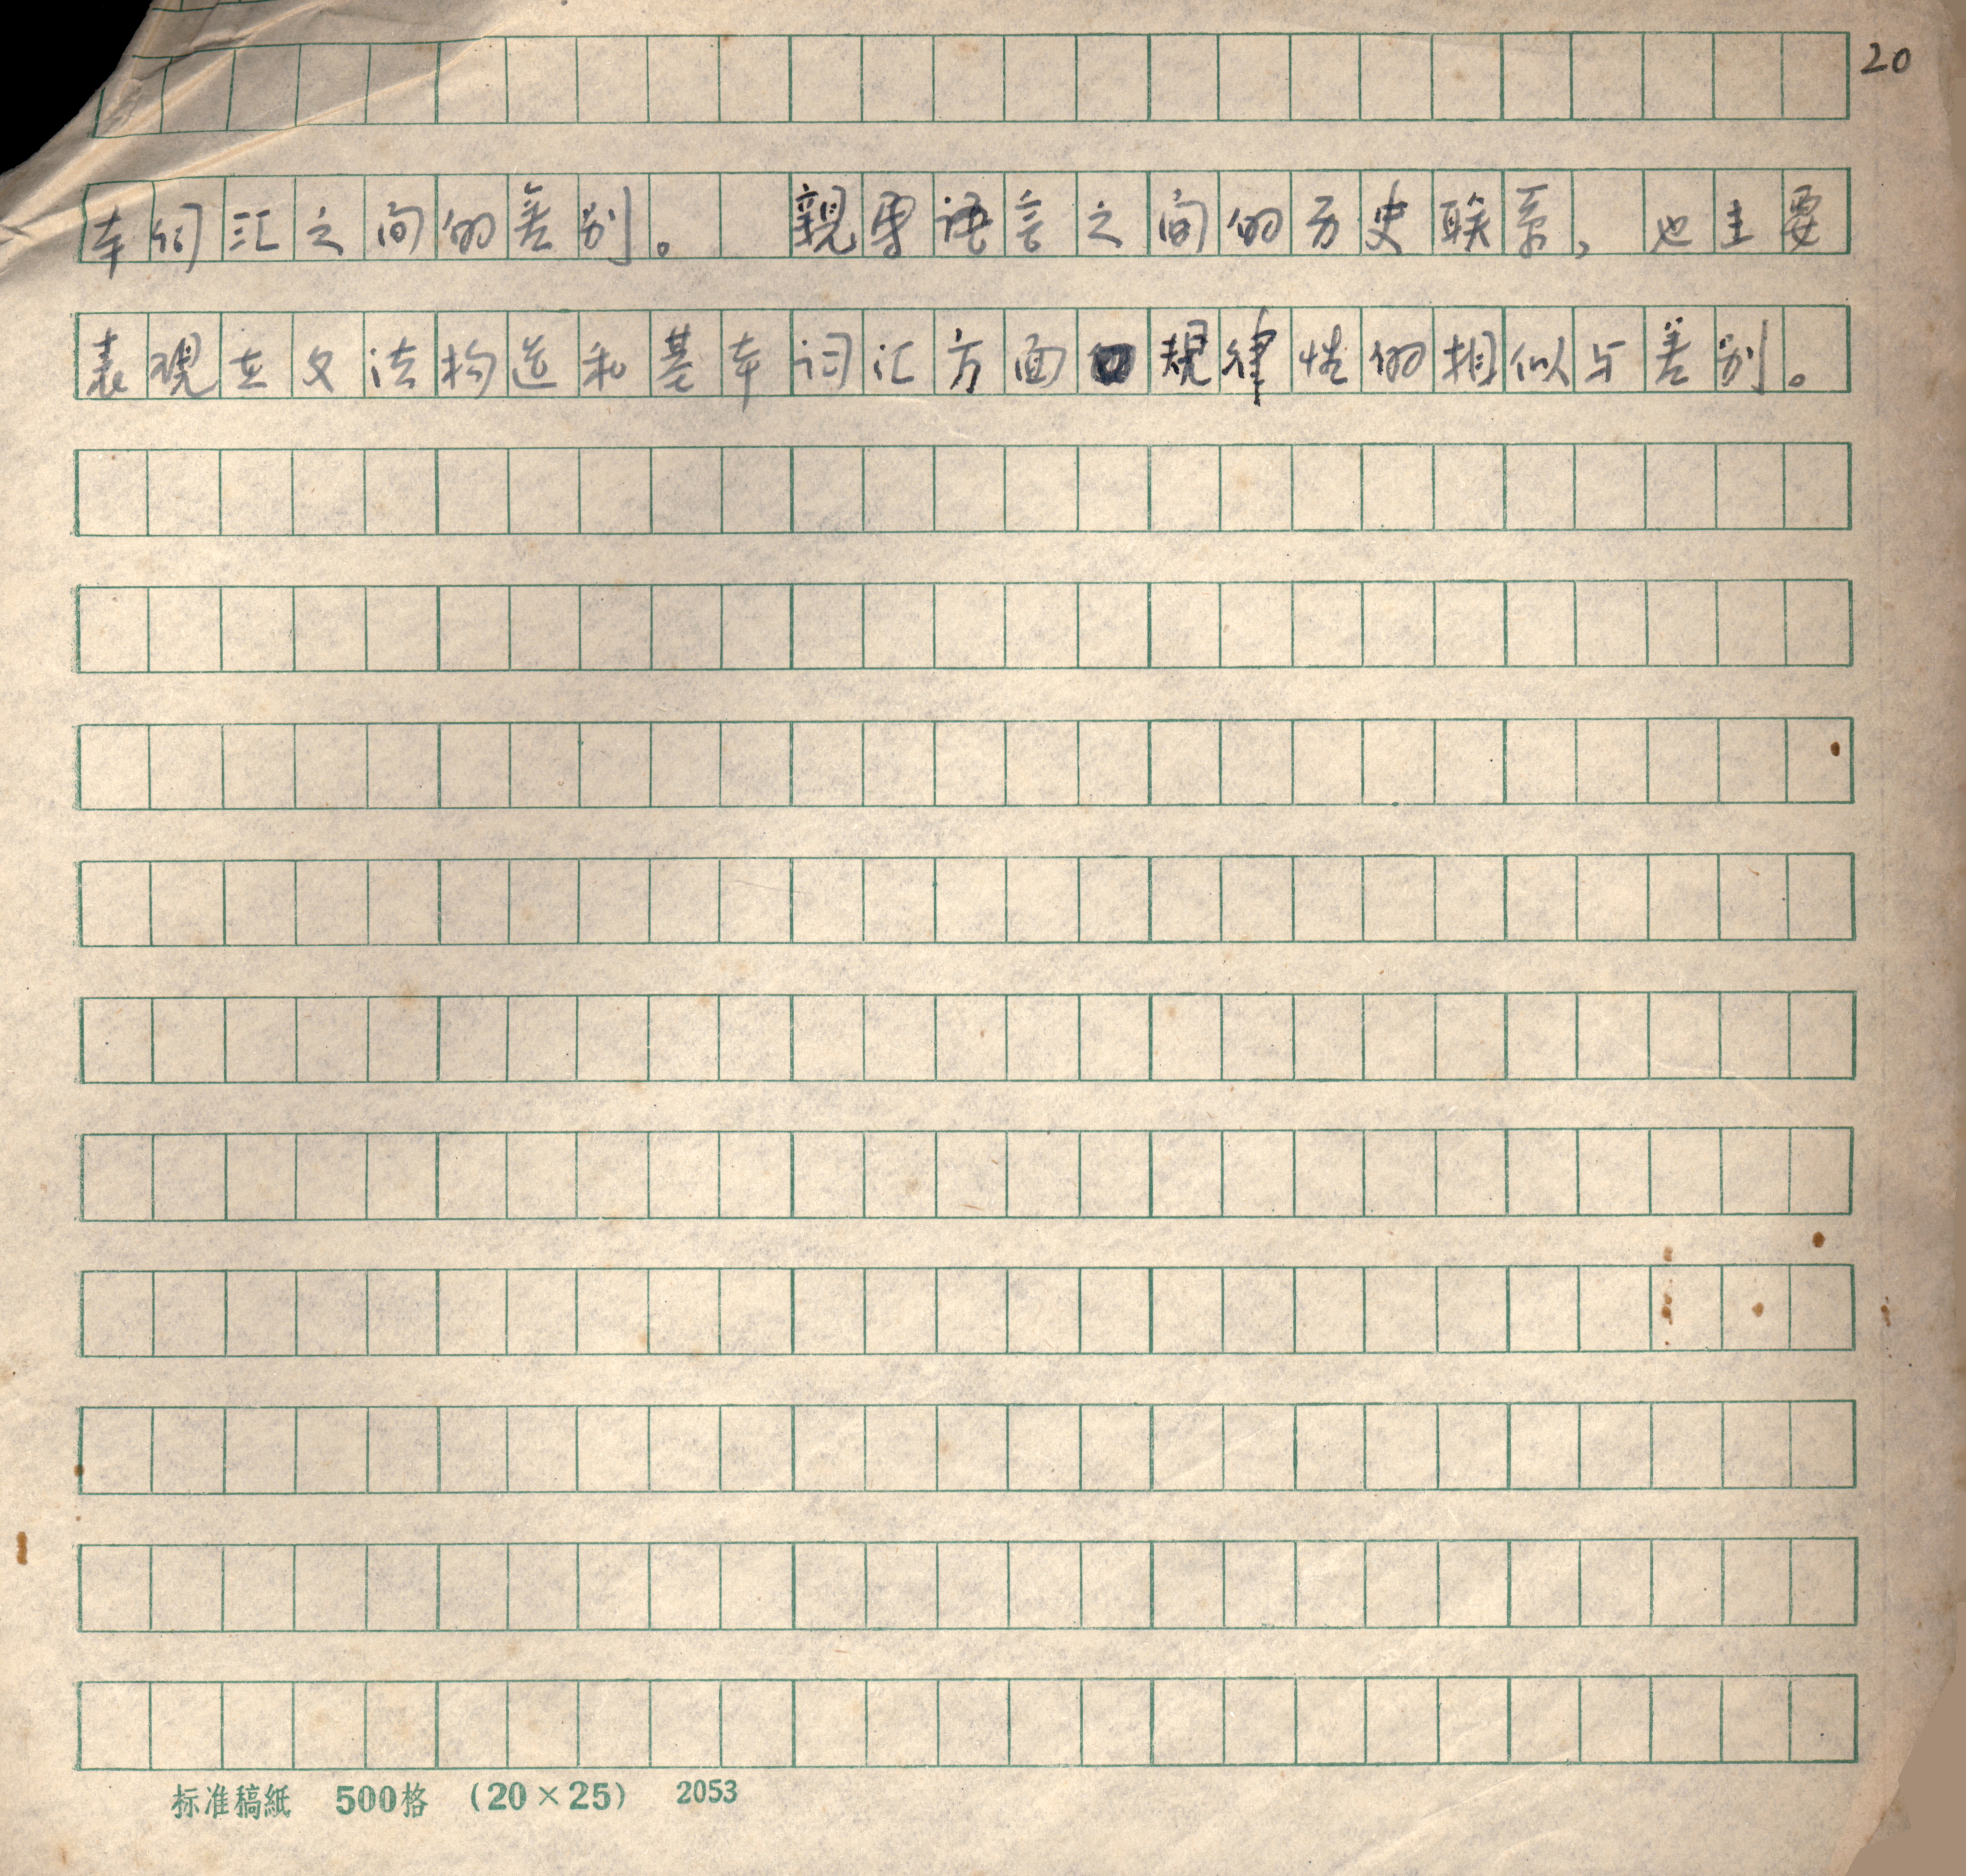 20
本词汇之间的差别。 親属语言之间的历史联系，也主要
表現在文法构造和基本词汇方面規律性的相似与差别。
标准稿紙 500格 (20×25) 2053